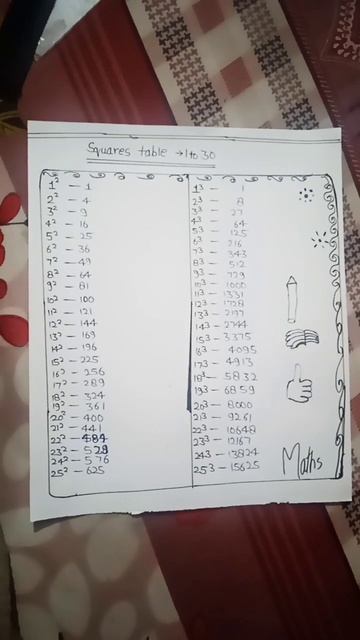 Squares table → 1 to 30
1² — 1
2² — 4
3² — 9
4² — 16
5² — 25
6² — 36
7² — 49
8² — 64
9² — 81
10² — 100
11² — 121
12² — 144
13² — 169
14² — 196
15² — 225
16² — 256
17² — 289
18² — 324
19² — 361
20² — 400
21² — 441
22² — 484
23² — 529
24² — 576
25² — 625
1³ — 1
2³ — 8
3³ — 27
4³ — 64
5³ — 125
6³ — 216
7³ — 343
8³ — 512
9³ — 729
10³ — 1000
11³ — 1331
12³ — 1728
13³ — 2197
14³ — 2744
15³ — 3375
16³ — 4095
17³ — 4913
18³ — 5832
19³ — 6859
20³ — 8000
21³ — 9261
22³ — 10648
23³ — 12167
24³ — 13824
25³ — 15625
Maths